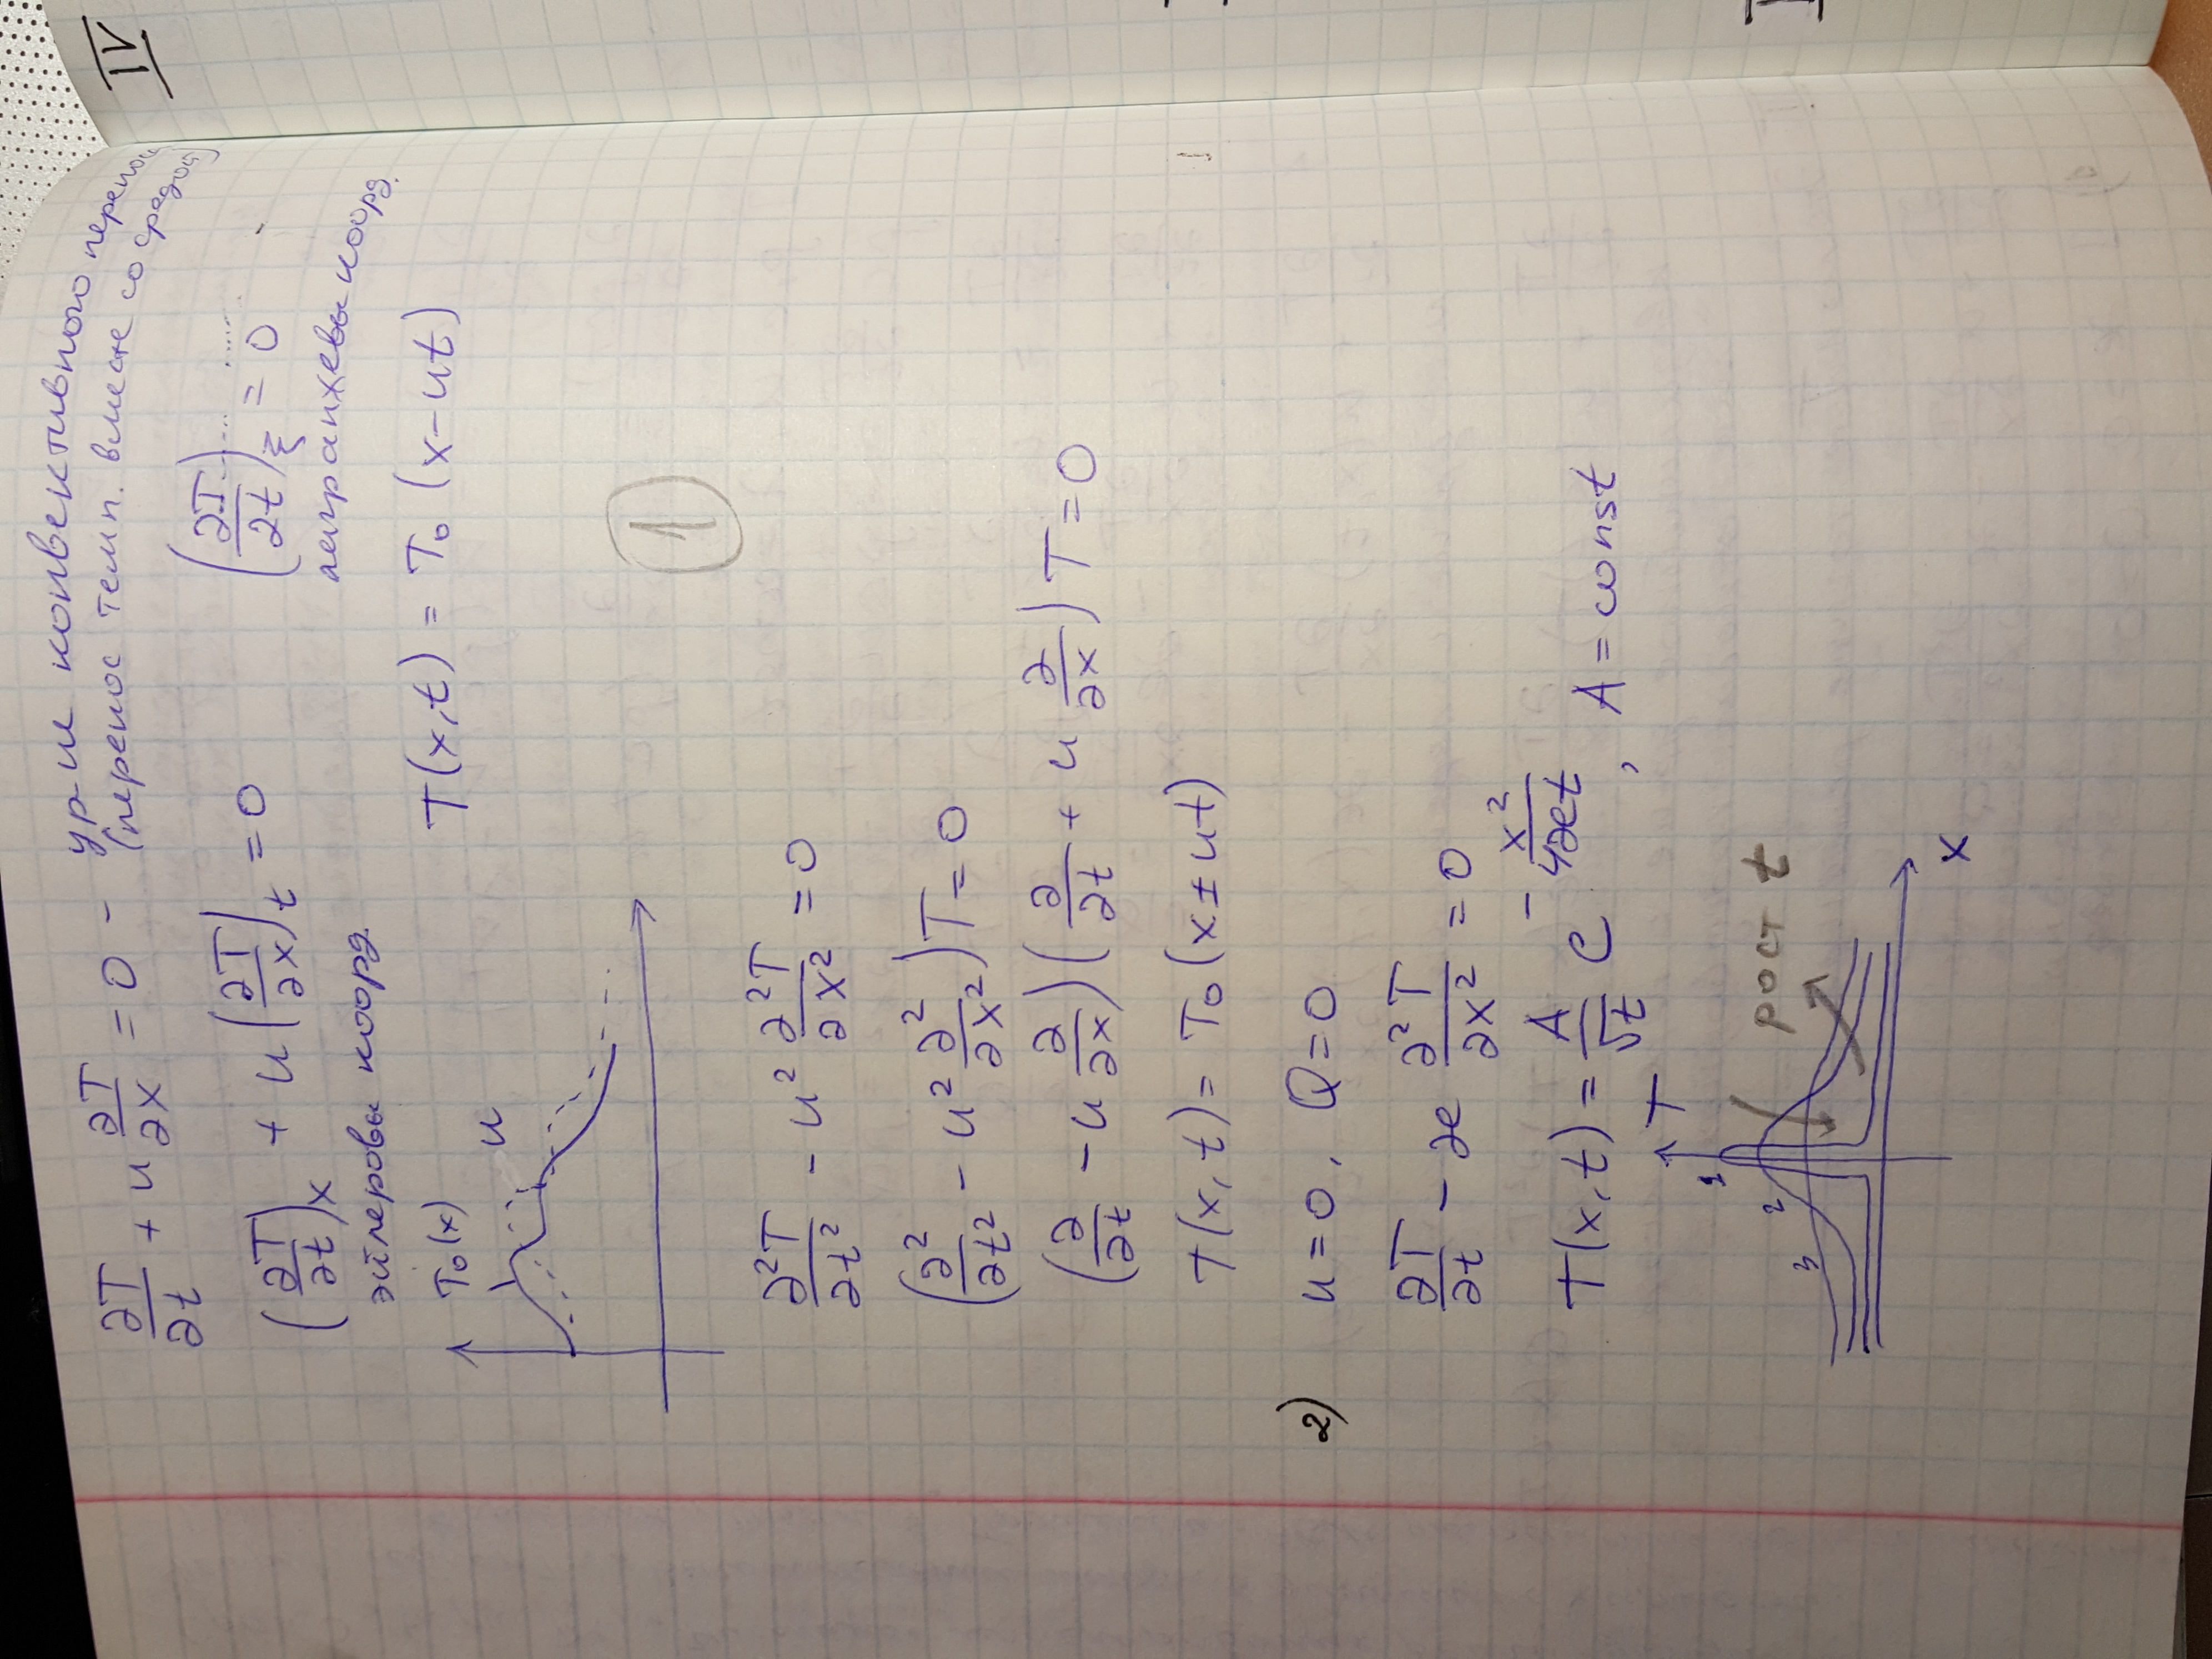 ∂T/∂t + u ∂T/∂x = 0 - ур-ие конвективного переноса
(перенос темп. вместе со средой)
(∂T/∂t)x + u (∂T/∂x)t = 0
(∂T/∂t)ξ = 0
эйлеровы коорд.
лагранжевы коорд.
T₀(x)
u
T(x,t) = T₀ (x-ut)
1
∂²T/∂t² - u² ∂²T/∂x² = 0
(∂²/∂t² - u² ∂²/∂x²) T = 0
(∂/∂t - u ∂/∂x)(∂/∂t + u ∂/∂x) T = 0
T(x,t) = T₀(x±ut)
2) u = 0, Q = 0
∂T/∂t - æ ∂²T/∂x² = 0
T(x,t) = A/√t e^(-x²/4æt), A = const
T
1
2
3
рост t
x
IV